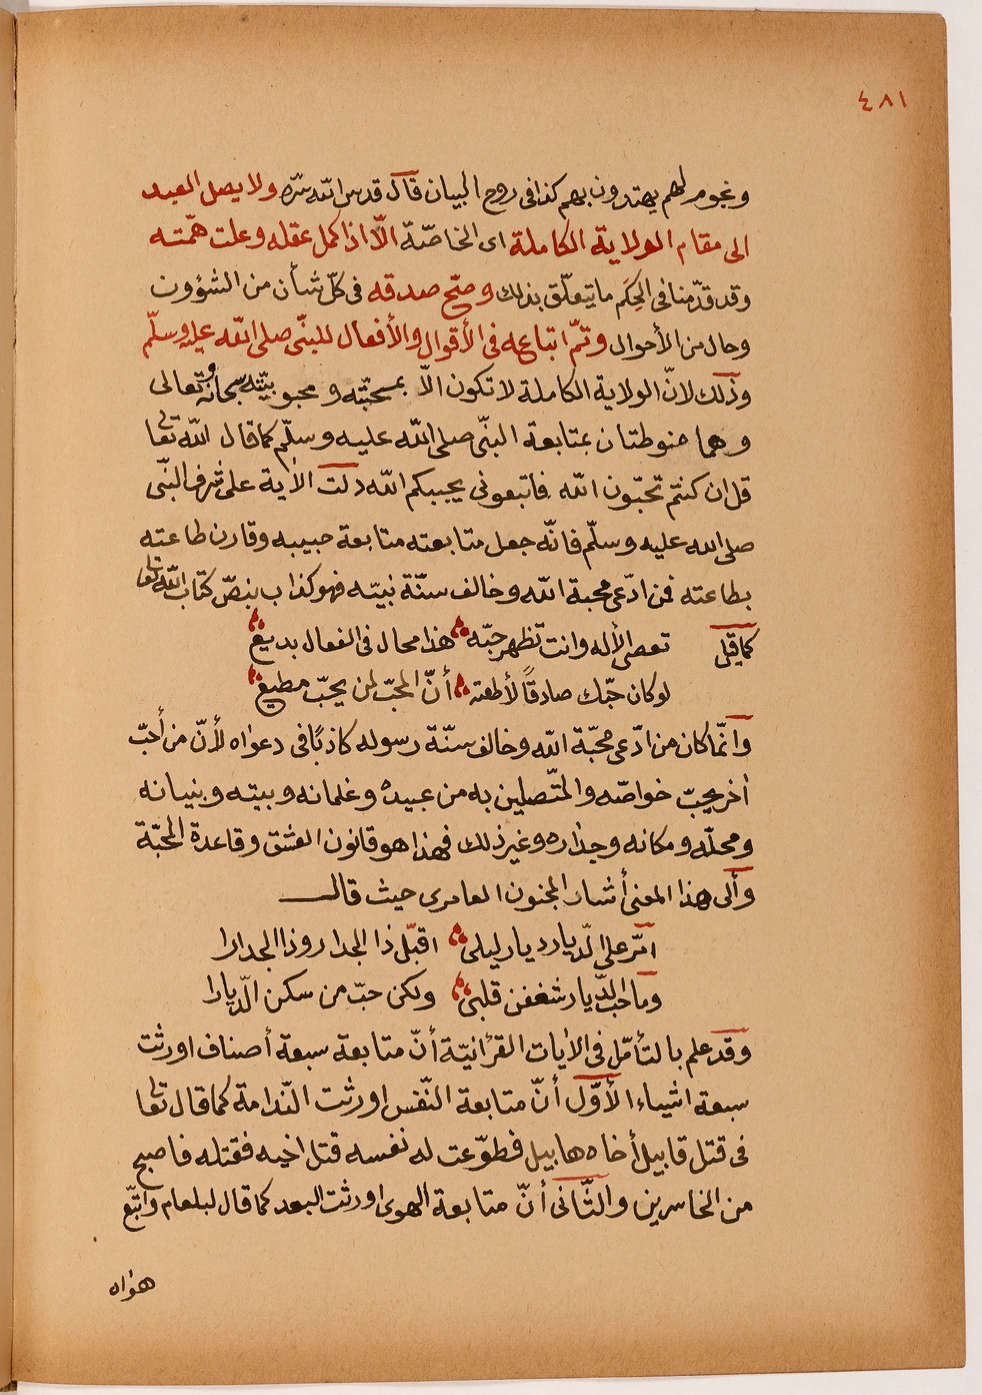 ٤٨١
ونجوم لهم يهتدون بهم كذا فى روح البيان قال قدس الله سرّه ولا يصل العبد
الى مقام الولاية الكاملة اى الخاصّة الّا اذا كمل عقله وعلت همّته
وقد قدّمنا فى الحِكَم ما يتعلّق بذلك وصحّ صدقه فى كلّ شأن من الشؤون
وحال من الأحوال وتمّ اتباعه فى الأقوال والأفعال للنبّى صلى الله عليه وسلّم
وذلك لانّ الولاية الكاملة لا تكون الاّ بمحبّته ومحبوبيّته سبحانه وتعالى
وهما منوطتان بمتابعة النبّى صلى الله عليه وسلّم كما قال الله تعا
قل ان كنتم تحبّون الله فاتبعونى يحببكم الله دلت الأية على شرف النبّى
صلى الله عليه وسلّم فانّه جعل متابعته متابعة حبيبه وقارن طاعته
بطاعته فمن ادّعى محبة الله وخالف سنّة نبيّه فهو كذاب بنصّ كتاب الله تعا
كما قيل تعصى الأله وانت تظهر حبّه هذا محال فى الفعال بديع
لو كان حبّك صادقًا لأطعته أنّ المحبّ لمن يحبّ مطيع
وانّما كان من ادّعى محبّة الله وخالف سنّة رسوله كاذبًا فى دعواه لأنّ من أحبّ
أخر يحبّ خواصّه والمتّصلين به من عبيده وغلمانه وبيته وبنيانه
ومحلّه ومكانه وجداره وغير ذلك فهذا هو قانون العشق وقاعدة المحبّة
وألى هذا المعنى أشار المجنون العامرى حيث قال
امرّ على الدّيار ديار ليلى اقبّل ذا الجدار وذا الجدارا
وما حب الدّيار شغفن قلبى ولكن حبّ من سكن الدّيارا
وقد علم بالتأمّل فى الأيات القرأنيّة أنّ متابعة سبعة أصناف اورثت
سبعة اشياء الأوّل أنّ متابعة النّفس اورثت النّدامة كما قال تعا
فى قتل قابيل أخاه هابيل فطوّعت له نفسه قتل اخيه فقتله فاصبح
من الخاسرين والثّانى أنّ متابعة الهوى اورثت البعد كما قال لبلعام واتبّع
هواه